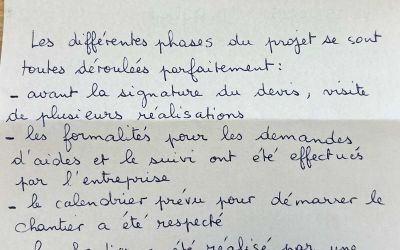 Les différentes phases du projet se sont
toutes déroulées parfaitement :
- avant la signature du devis, visite
de plusieurs réalisations
- les formalités pour les demandes
d'aides et le suivi ont été effectués
par l'entreprise
- le calendrier prévu pour démarrer le
chantier a été respecté
été réalisé par une